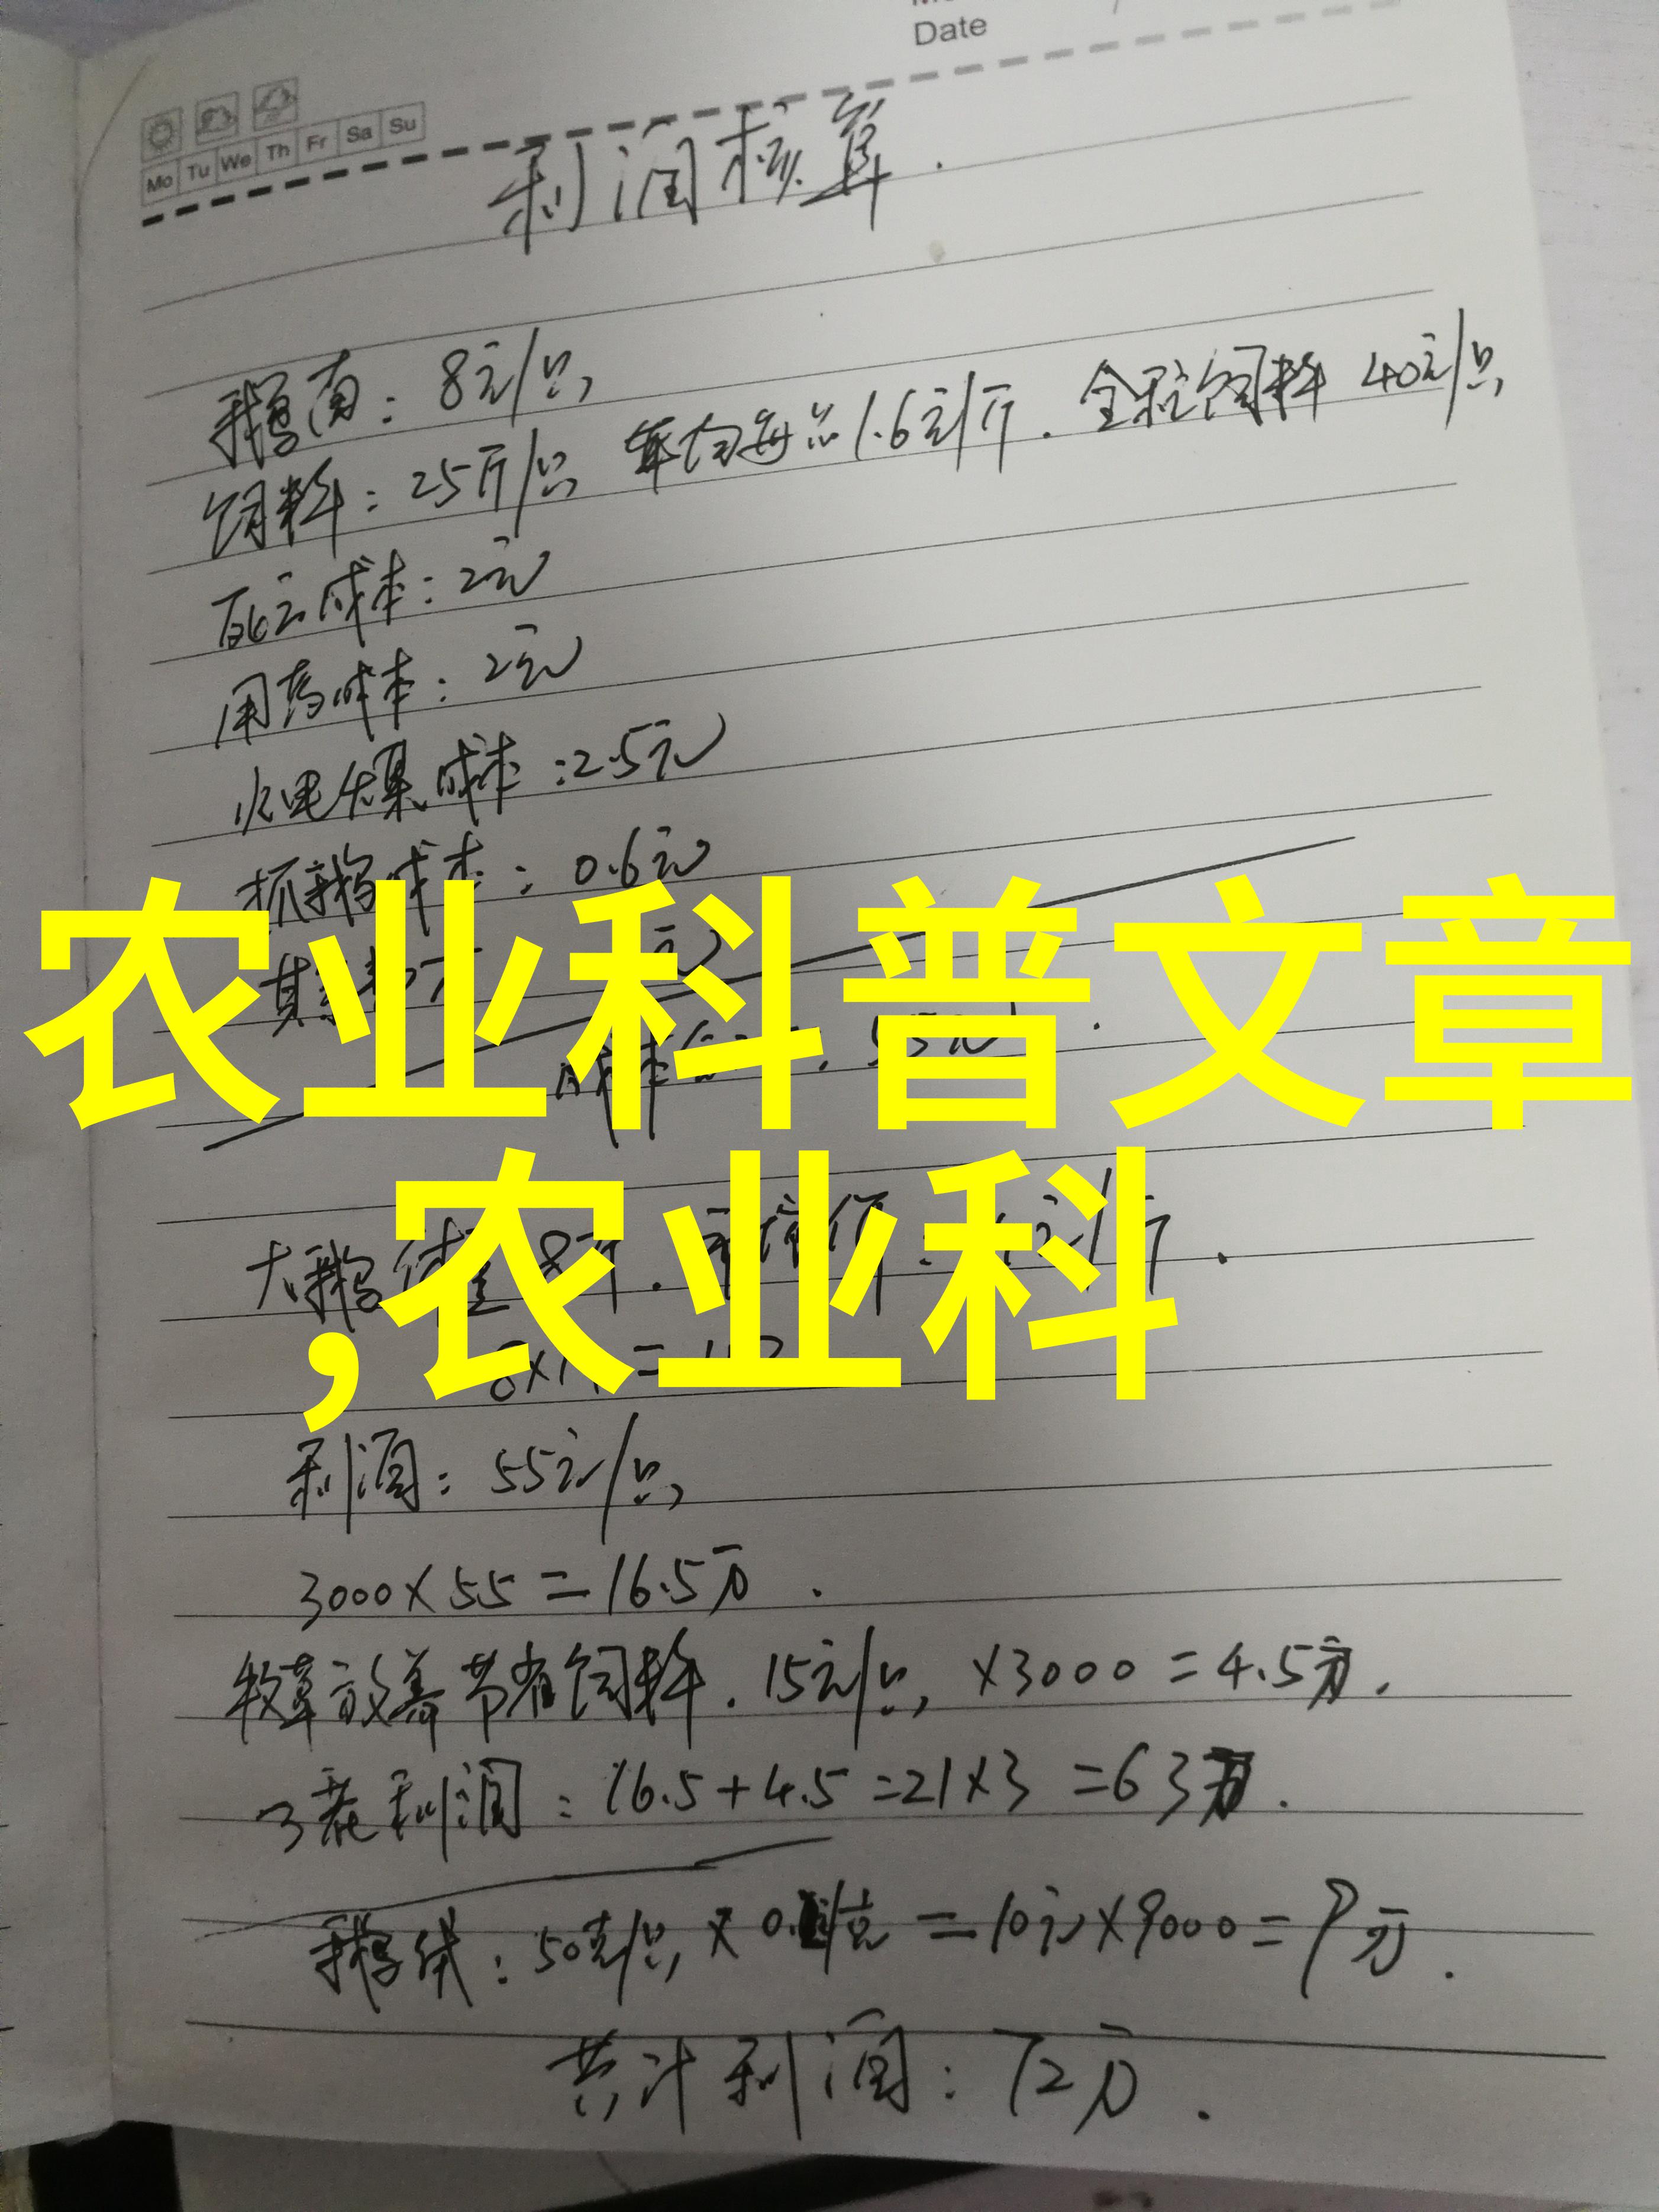 Date
Mo Tu We Th Fr Sa Su
利润核算.
鹅苗: 8元/只
饲料: 25斤/只 平均每斤1.6元/斤. 全程饲料 40元/只
死亡成本: 2元
用药成本: 2元
水电煤成本: 2.5元
抓鹅成本: 0.6元
农业科普文章
,农业科
利润: 55元/只
3000×55=16.5万.
牧草放养节省饲料. 15元/只 ×3000=4.5万.
3茬利润: 16.5+4.5=21×3=63万.
鹅绒: 50克/只 × =10元×9000=9万.
共计利润: 72万.